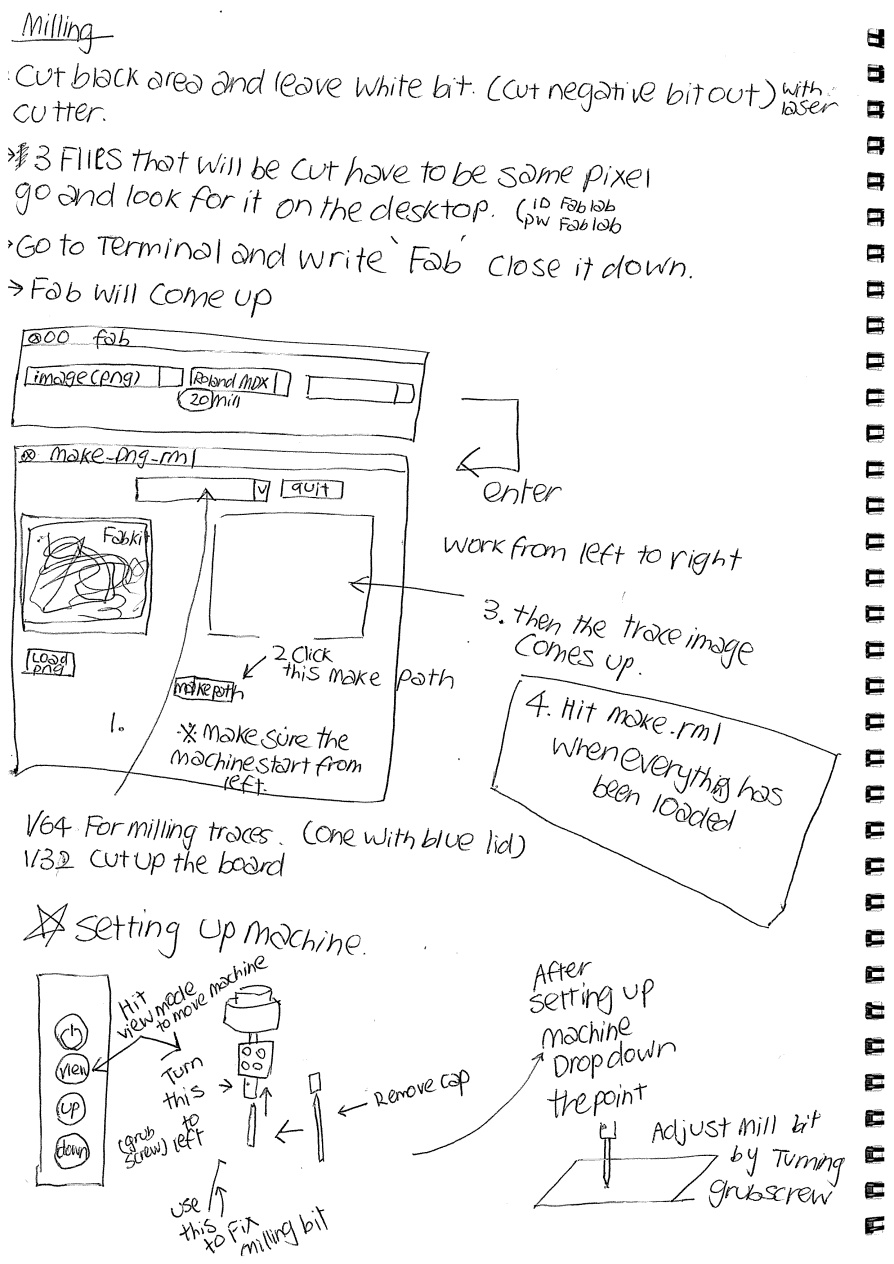 Milling
Cut black area and leave white bit. (cut negative bit out) with laser
cutter.
→ 3 Files that will be cut have to be same pixel
go and look for it on the desktop. (ID Fablab
PW Fablab
→ Go to Terminal and write `Fab´ close it down.
→ Fab will come up
fab
image(png)
Roland MDX
20 mill
enter
make_png_rml
quit
Fabkit
work from left to right
Load
png
2. click
this make path
make path
3. then the trace image
comes up.
1.
※ Make sure the
machine start from
left.
4. Hit make.rml
when everything has
been loaded
1/64 For milling traces. (one with blue lid)
1/32 cut up the board
☆ Setting up machine.
Hit
view mode
to move machine
view
up
down
Turn
this
(grub
screw) to
left
Remove cap
use
this
to Fix
milling bit
After
setting up
machine
Drop down
the point
Adjust mill bit
by Turning
grubscrew